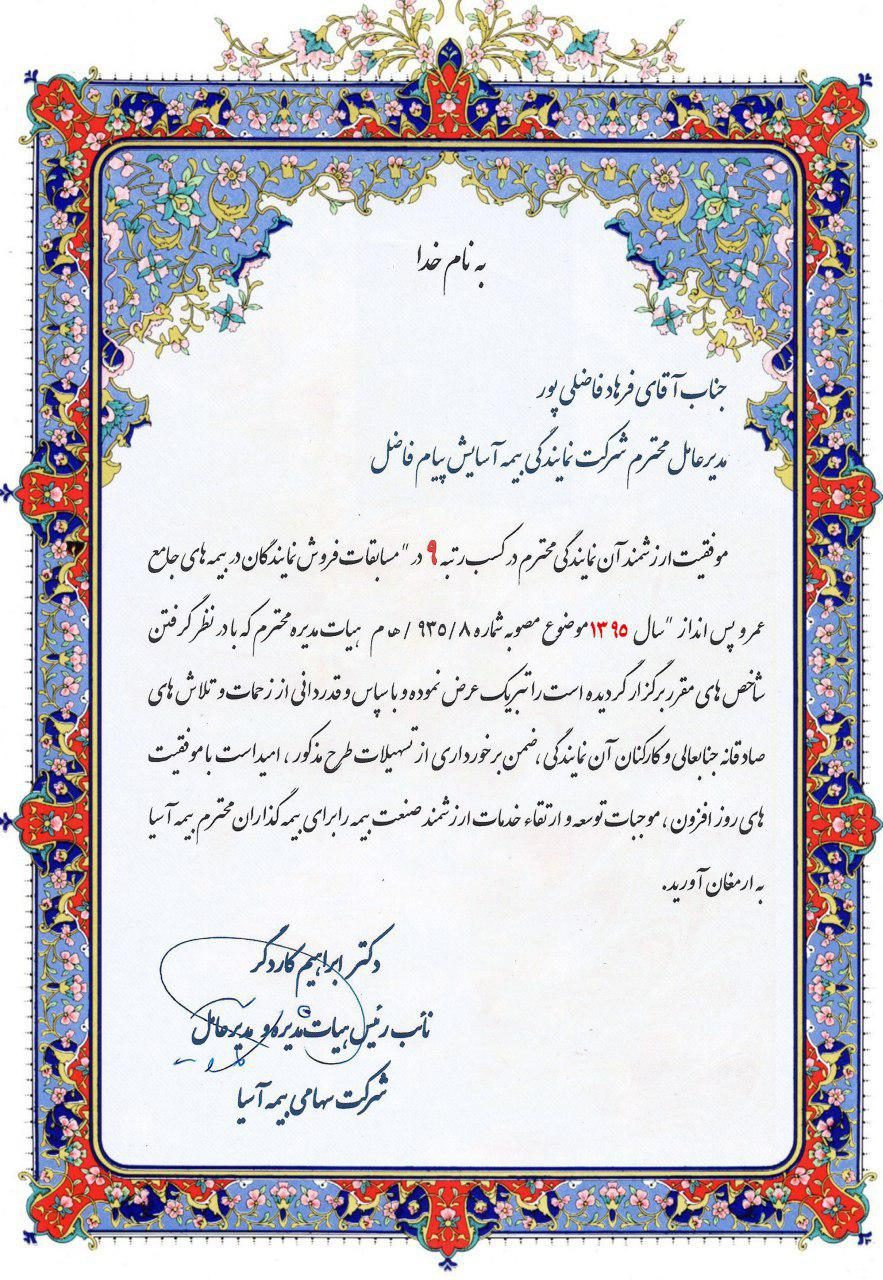 به نام خدا
جناب آقای فرهاد فاضلی پور
مدیرعامل محترم شرکت نمایندگی بیمه آسایش پیام فاضل
موفقیت ارزشمند آن نمایندگی محترم در کسب رتبه ۹ در "مسابقات فروش نمایندگان در بیمه های جامع
عمر و پس انداز "سال ۱۳۹۵موضوع مصوبه شماره ۹۳۵/۸ /ه م هیات مدیره محترم که با در نظر گرفتن
شاخص های مقرر برگزار گردیده است را تبریک عرض نموده و با سپاس و قدردانی از زحمات و تلاش های
صادقانه جنابعالی و کارکنان آن نمایندگی ،ضمن برخورداری از تسهیلات طرح مذکور ، امید است با موفقیت
های روز افزون ، موجبات توسعه و ارتقاء خدمات ارزشمند صنعت بیمه را برای بیمه گذاران محترم بیمه آسیا
به ارمغان آورید.
دکتر ابراهیم کاردگر
نائب رئیس هیات مدیره و مدیرعامل
شرکت سهامی بیمه آسیا